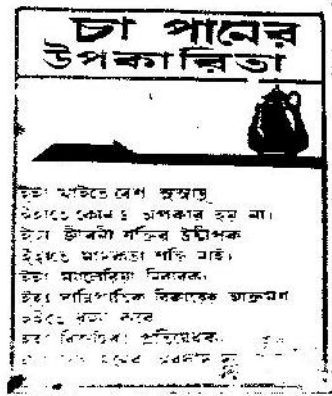 চা পানের
উপকারিতা
ইহা খাইতে বেশ সুস্বাদু
ইহাতে কোনও অপকার হয় না।
ইহা জীবনী শক্তির উদ্দীপক
ইহাতে মাদকতা শক্তি নাই।
ইহা ম্যালেরিয়া নিবারক।
ইহা সান্নিপাতিক বিকারের আক্রমণ
হইতে রক্ষা করে
ইহা বিসূচিকা প্রতিষেধক।